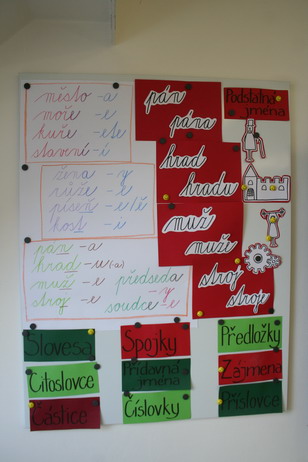 město -a
moře -e
kuře -ete
stavení -í
žena -y
růže -e
píseň -e/ě
kost -i
pán -a
hrad -u (-a)
muž -e
stroj -e
předseda -y
soudce -e
pán
pána
hrad
hradu
muž
muže
stroj
stroje
Podstatná jména
Slovesa
Citoslovce
Částice
Spojky
Přídavná jména
Číslovky
Předložky
Zájmena
Příslovce